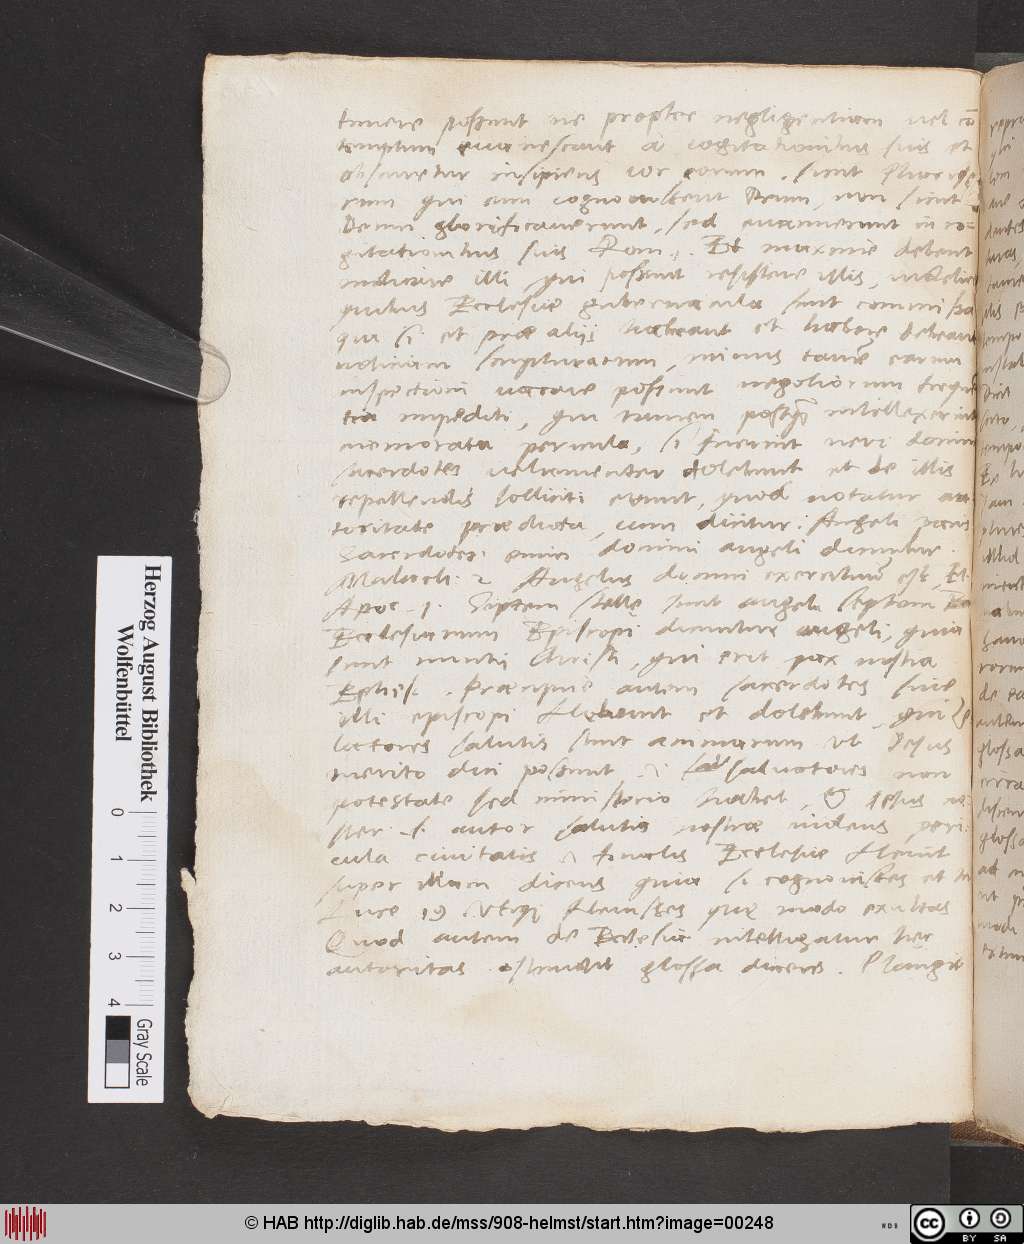 timere possunt ne propter negligentiam vel cō
temptum euanescant a cogitationibus suis et
obscuretur insipiens cor eorum. sunt
rum qui cum cognouissent Deum, non sicut
Deum glorificauerunt, sed euanuerunt in co-
gitationibus suis Rom. 1. Et maxime debent
illi qui possunt resistere illis, videlicet
quibus Ecclesiae gubernacula sunt commissa
qui si et prae aliis habeant et habere debeant
notitiam scripturarum, minus tamē earum
inspectioni vacare possunt negotiorum frequē
tia impediti, qui tamen postq̄ intellexerint
memorata pericula, si fuerint veri domini
sacerdotes vehementer dolebunt et de illis
repellendis solliciti erunt, quod notatur au
toritate praedicta, cum dicitur: Angeli pacis
Sacerdotes enim domini angeli dicuntur.
Malach: 2 Angelus domini exercituū est, Et
Apoc. 1. Septem stelle sunt angeli septem
Ecclesiarum Episcopi dicuntur angeli, quia
sunt nuntii Christi, qui erit pax nostra
Ephes. Praecipue autem sacerdotes siue
illi episcopi flebunt et dolebunt, qui ze
latores salutis sunt animarum vt Jesus
merito dici possunt .i. saluatores non
potestate sed ministerio habet, Jesus no
ster .s. autor salutis nostrae videns peri
cula ciuitatis .i. finalis Ecclesiae fleuit
super illam dicens quia si cognouisses et tu
Luce 19 Vtiqȝ fleuisses que modo exultas
Quod autem de Ecclesia intelligatur hec
autoritas ostendit glossa dicens. Plangit
Herzog August Bibliothek
Wolfenbüttel
0 1 2 3 4
Gray Scale
© HAB http://diglib.hab.de/mss/908-helmst/start.htm?image=00248
WDB
cc BY SA